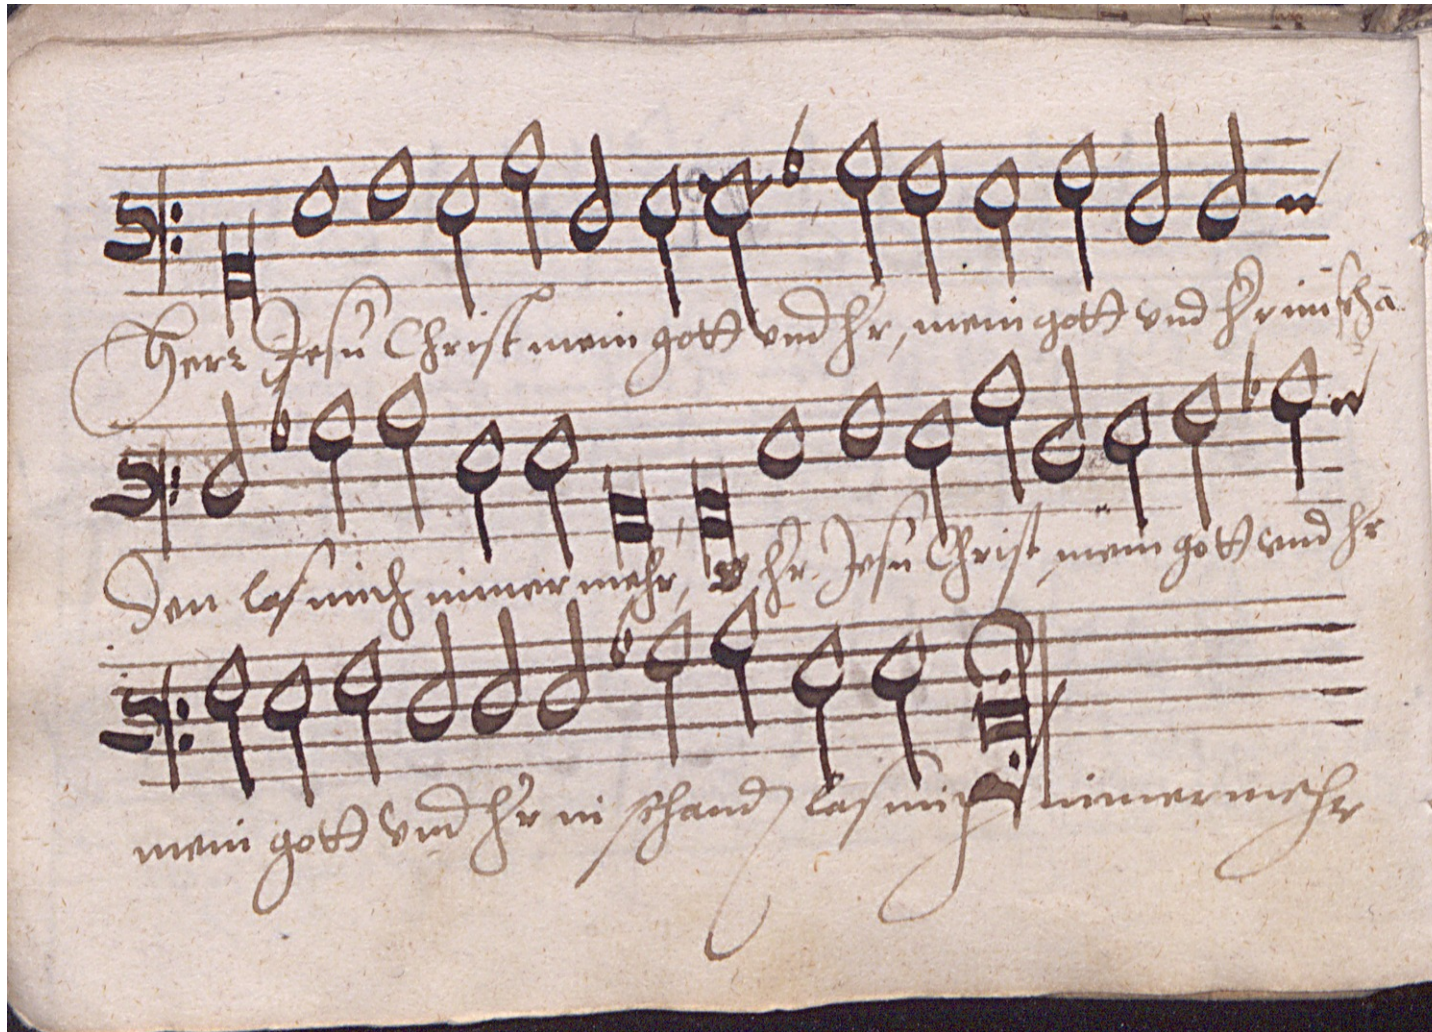 Herr Jesu Christ mein gott vnd hr, mein gott vnd hr in schā
den las mich nimer mehr, O hr Jesu Christ mein gott vnd hr
mein gott vnd hr in schand las mich nimermehr